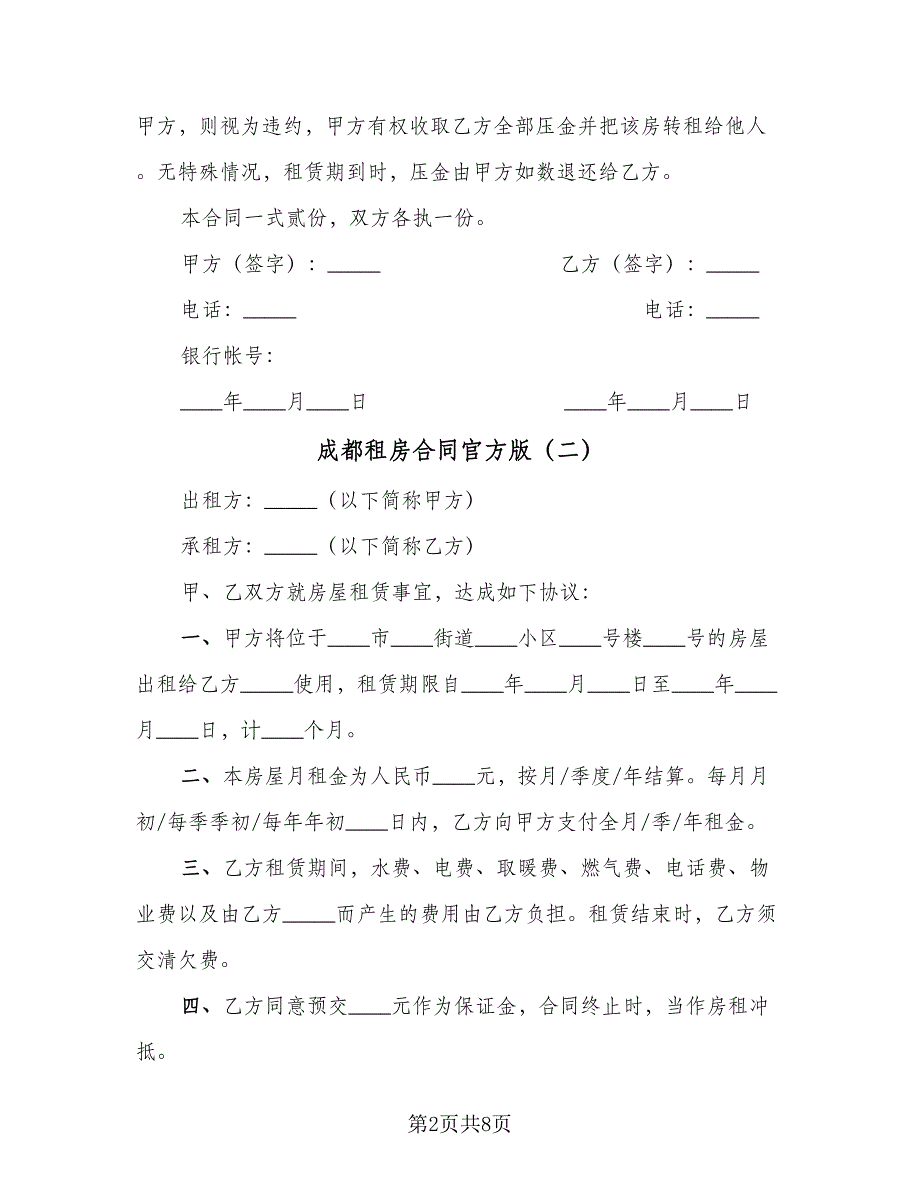 甲方，则视为违约，甲方有权收取乙方全部压金并把该房转租给他人
。无特殊情况，租赁期到时，压金由甲方如数退还给乙方。
本合同一式贰份，双方各执一份。
甲方（签字）：_____ 乙方（签字）：_____
电话：_____ 电话：_____
银行帐号：
____年____月____日 ____年____月____日
成都租房合同官方版（二）
出租方：_____（以下简称甲方）
承租方：_____（以下简称乙方）
甲、乙双方就房屋租赁事宜，达成如下协议：
一、甲方将位于____市____街道____小区____号楼____号的房屋
出租给乙方_____使用，租赁期限自____年____月____日至____年____
月____日，计____个月。
二、本房屋月租金为人民币____元，按月/季度/年结算。每月月
初/每季季初/每年年初____日内，乙方向甲方支付全月/季/年租金。
三、乙方租赁期间，水费、电费、取暖费、燃气费、电话费、物
业费以及由乙方_____而产生的费用由乙方负担。租赁结束时，乙方须
交清欠费。
四、乙方同意预交____元作为保证金，合同终止时，当作房租冲
抵。
第2页共8页